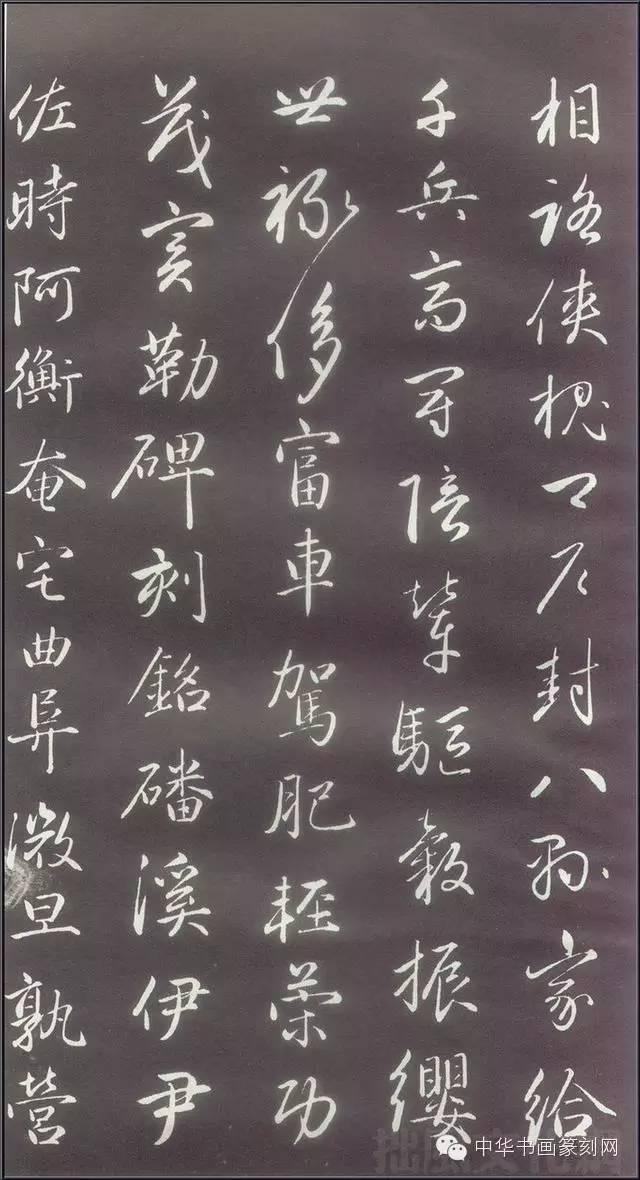 相路侠槐卿户封八縣家給
千兵高冠陪輦驅轂振纓
世禄侈富車駕肥輕策功
茂实勒碑刻銘磻溪伊尹
佐時阿衡奄宅曲阜微旦孰營
中华书画篆刻网
拙風文化網